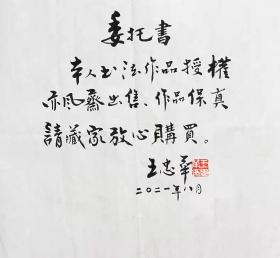 委托书
本人书法作品授權
亦風齋出售、作品保真
請藏家放心購買。
王忠華
二〇二一年八月